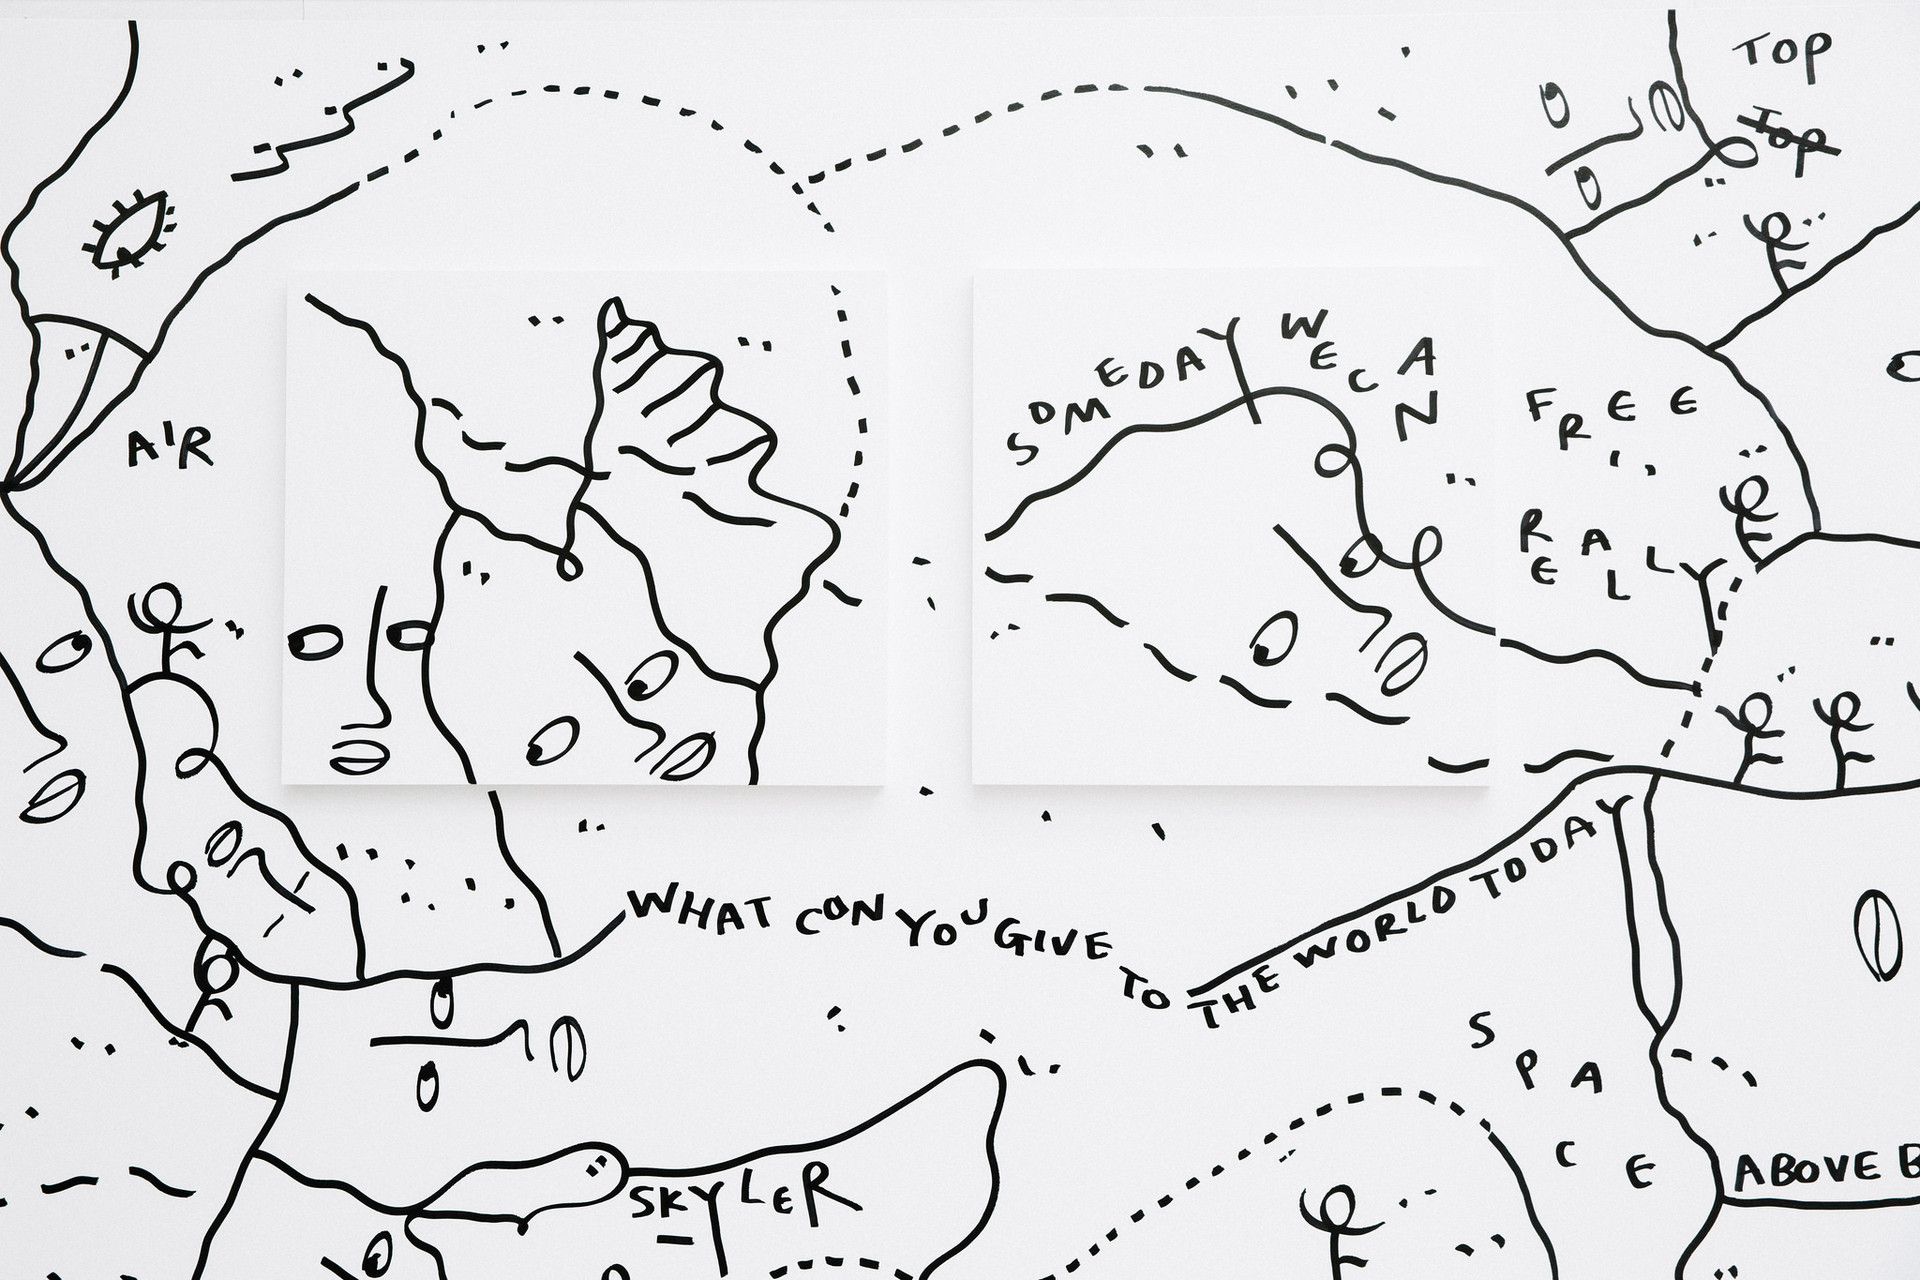 TOP
Top
SOMEDAY WE CAN
FREE
AIR
REALLY
WHAT CAN YOU GIVE TO THE WORLD TODAY
SPACE
ABOVE B
SKYLER